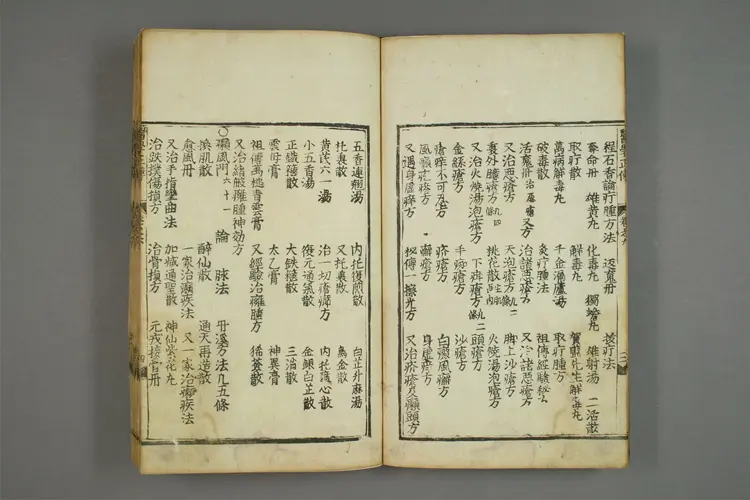 程石香論疔腫方法 返魂丹 拔疔法
奪命丹 雄黃丸 化毒丸 獨蟾丸 雄射湯 二活散
取疔散 解毒丸 賀興先生解毒丸
萬病解毒丸 千金漏蘆湯 取疔腫方
破毒散 灸疔腫法 祖傳經驗秘
活魔丹治 又方 治諸惡瘡方 又治諸惡瘡方
又治惡瘡方 天泡瘡方 脚上沙瘡方
裏外臁瘡方 桃花散 火燒湯泡瘡方
又治火燒湯泡瘡方 下疳瘡方 二頭瘡方
金絲瘡方 手瘡方 沙瘡方
瘡痒不可忍方 疥瘡方 白癜風癬方
風癮疹方 癬瘡方 身虛痒方
又遇身虛痒方 秘傳一擦光方 又治疥瘡及癩頭方
五香連翹湯 內托復煎散 白芷升麻湯
托裏散 又托裏散 烏金散
黃芪六一湯 治一切瘡瘍方 內托護心散
小五香湯 復元通氣散 金銀白芷散
正鐵箍散 大鐵箍散 三消散
雲母膏 太乙膏 神異膏
祖傳萬應膏雲膏 又經驗治癰腫方 豨薟散
又治諸般癰腫神効方
○癘風門六十一 論 脉法 丹溪方法九五條
換肌散 醉仙散 通天再造散
愈風丹 一家治癘疾法 又一家治癘疾法
又治手指攣曲法 加減通聖散 神仙紫花丸
治跌撲傷損方 治骨損方 元戎接骨丹